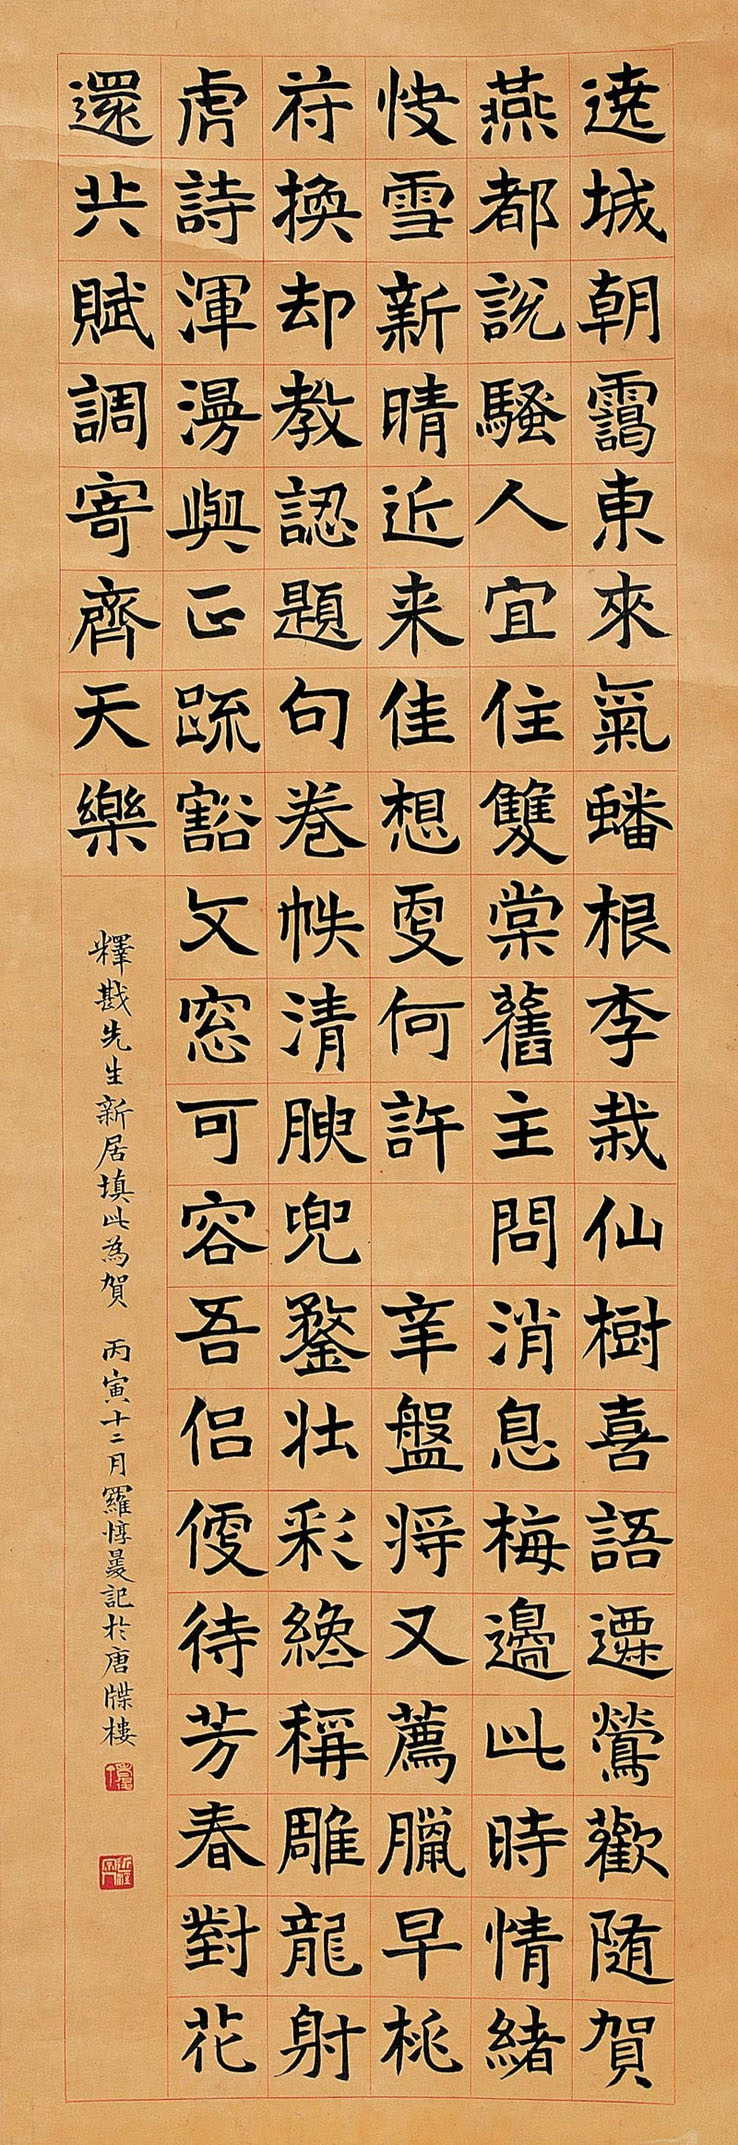 遶城朝靄東來氣蟠根李栽仙樹喜語遷鶯歡隨賀
燕都說騷人宜住雙棠舊主問消息梅邊此時情緒
快雪新晴近来佳想更何許　辛盤將又薦臘早桃
符換却教認題句卷帙清腴兜鍪壯彩總稱雕龍射
虎詩渾漫與正疏豁文窓可容吾侶便待芳春對花
還共賦調寄齊天樂
釋戡先生新居填此為賀　丙寅十二月羅惇㬊記於唐牒樓